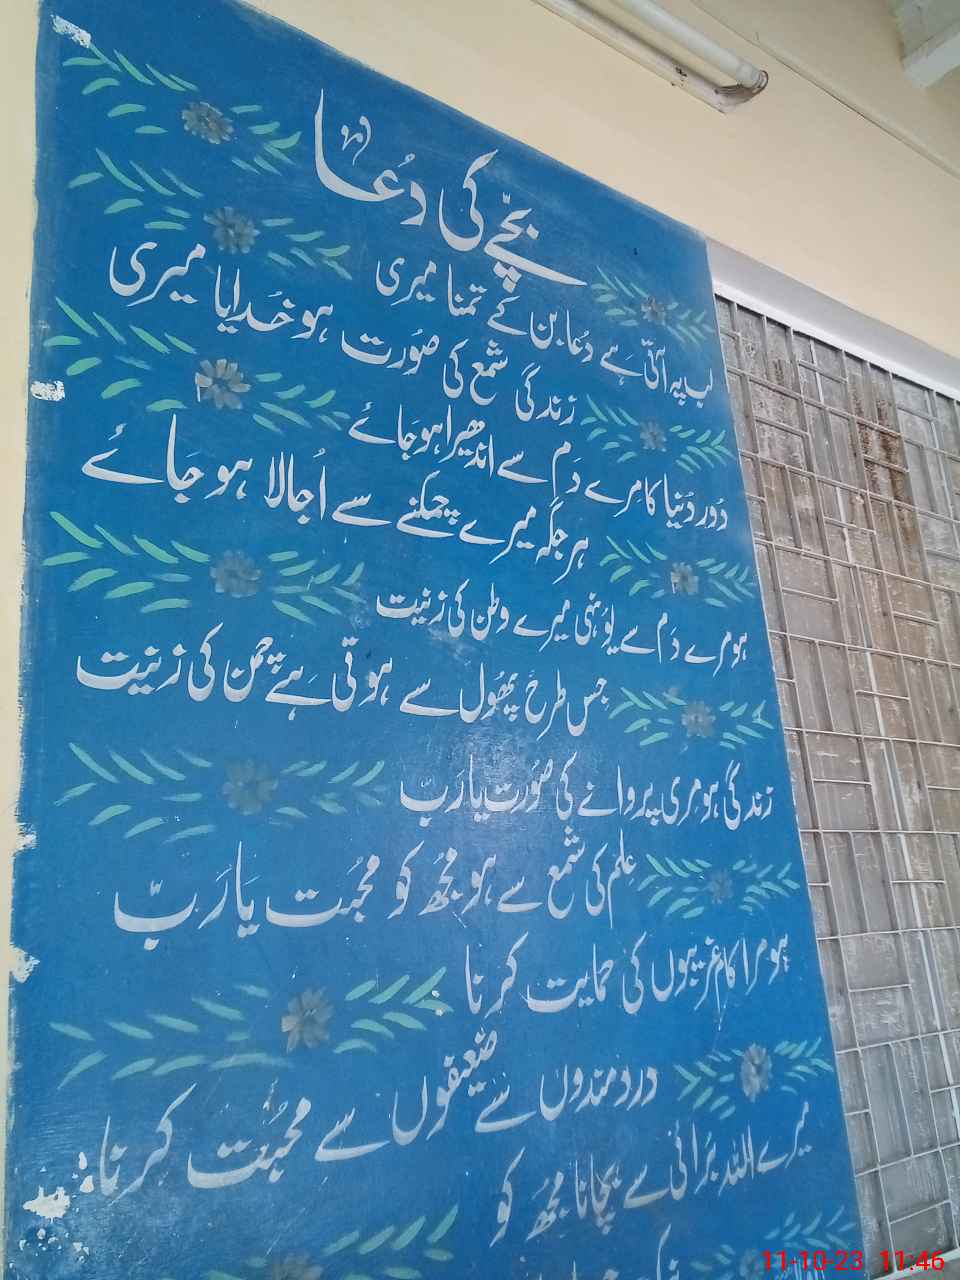 بچّے کی دُعا
لب پہ آتی ہے دُعا بن کے تمنا میری
زندگی شمع کی صُورت ہو خُدایا میری
دُور دُنیا کا مرے دَم سے اندھیرا ہو جَائے
ہر جگہ میرے چمکنے سے اُجالا ہو جَائے
ہو مرے دَم سے یُونہی میرے وطن کی زینت
جس طرح پھُول سے ہوتی ہے چمن کی زینت
زندگی ہو مری پروانے کی صُورت یا رَبّ
علم کی شمع سے ہو مجُھ کو محُبت یا رَبّ
ہو مرا کام غریبوں کی حمایت کرنا
دردمندوں سے ضعیفوں سے محبُت کرنا
میرے اللہ بُرائی سے بچانا مجھُ کو
11-10-23 11:46